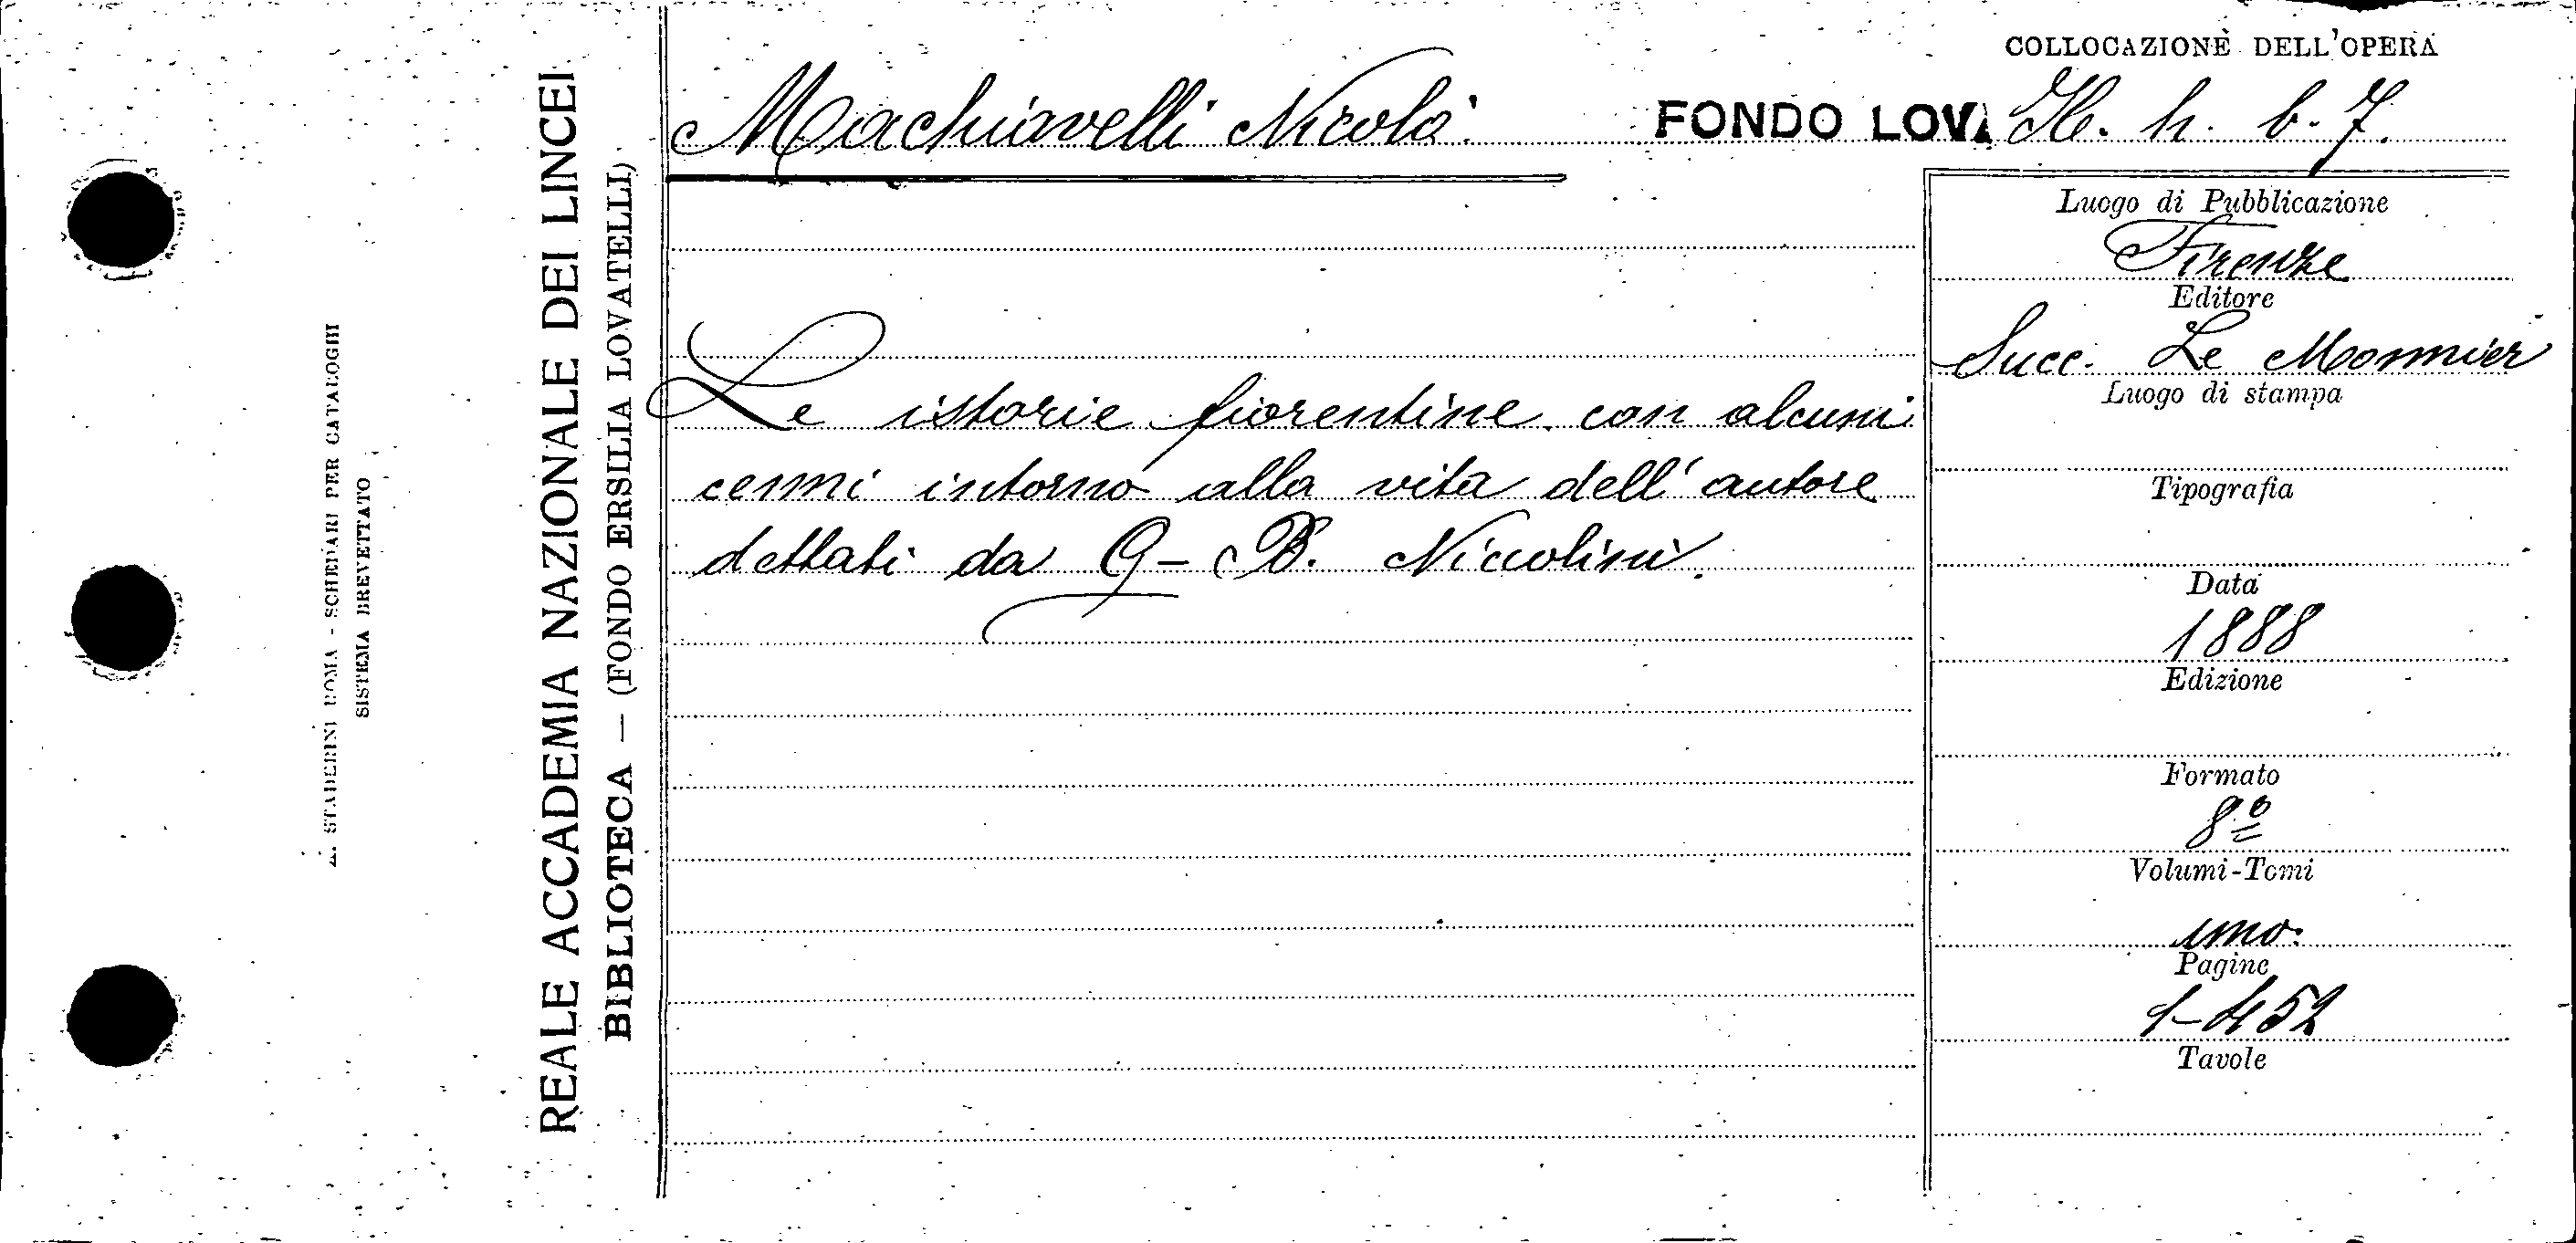 A. STADERINI ROMA - SCHEDARI PER CATALOGHI
SISTEMA BREVETTATO
REALE ACCADEMIA NAZIONALE DEI LINCEI
BIBLIOTECA — (FONDO ERSILIA LOVATELLI)
Machiavelli Nicolò
FONDO LOVA
Le istorie fiorentine con alcuni
cenni intorno alla vita dell'autore
dettati da G-B. Niccolini.
COLLOCAZIONE DELL'OPERA
h. b. 7.
Luogo di Pubblicazione
Firenze
Editore
Succ. Le Monnier
Luogo di stampa
Tipografia
Data
1888
Edizione
Formato
8º
Volumi-Tomi
uno.
Pagine
1-452
Tavole